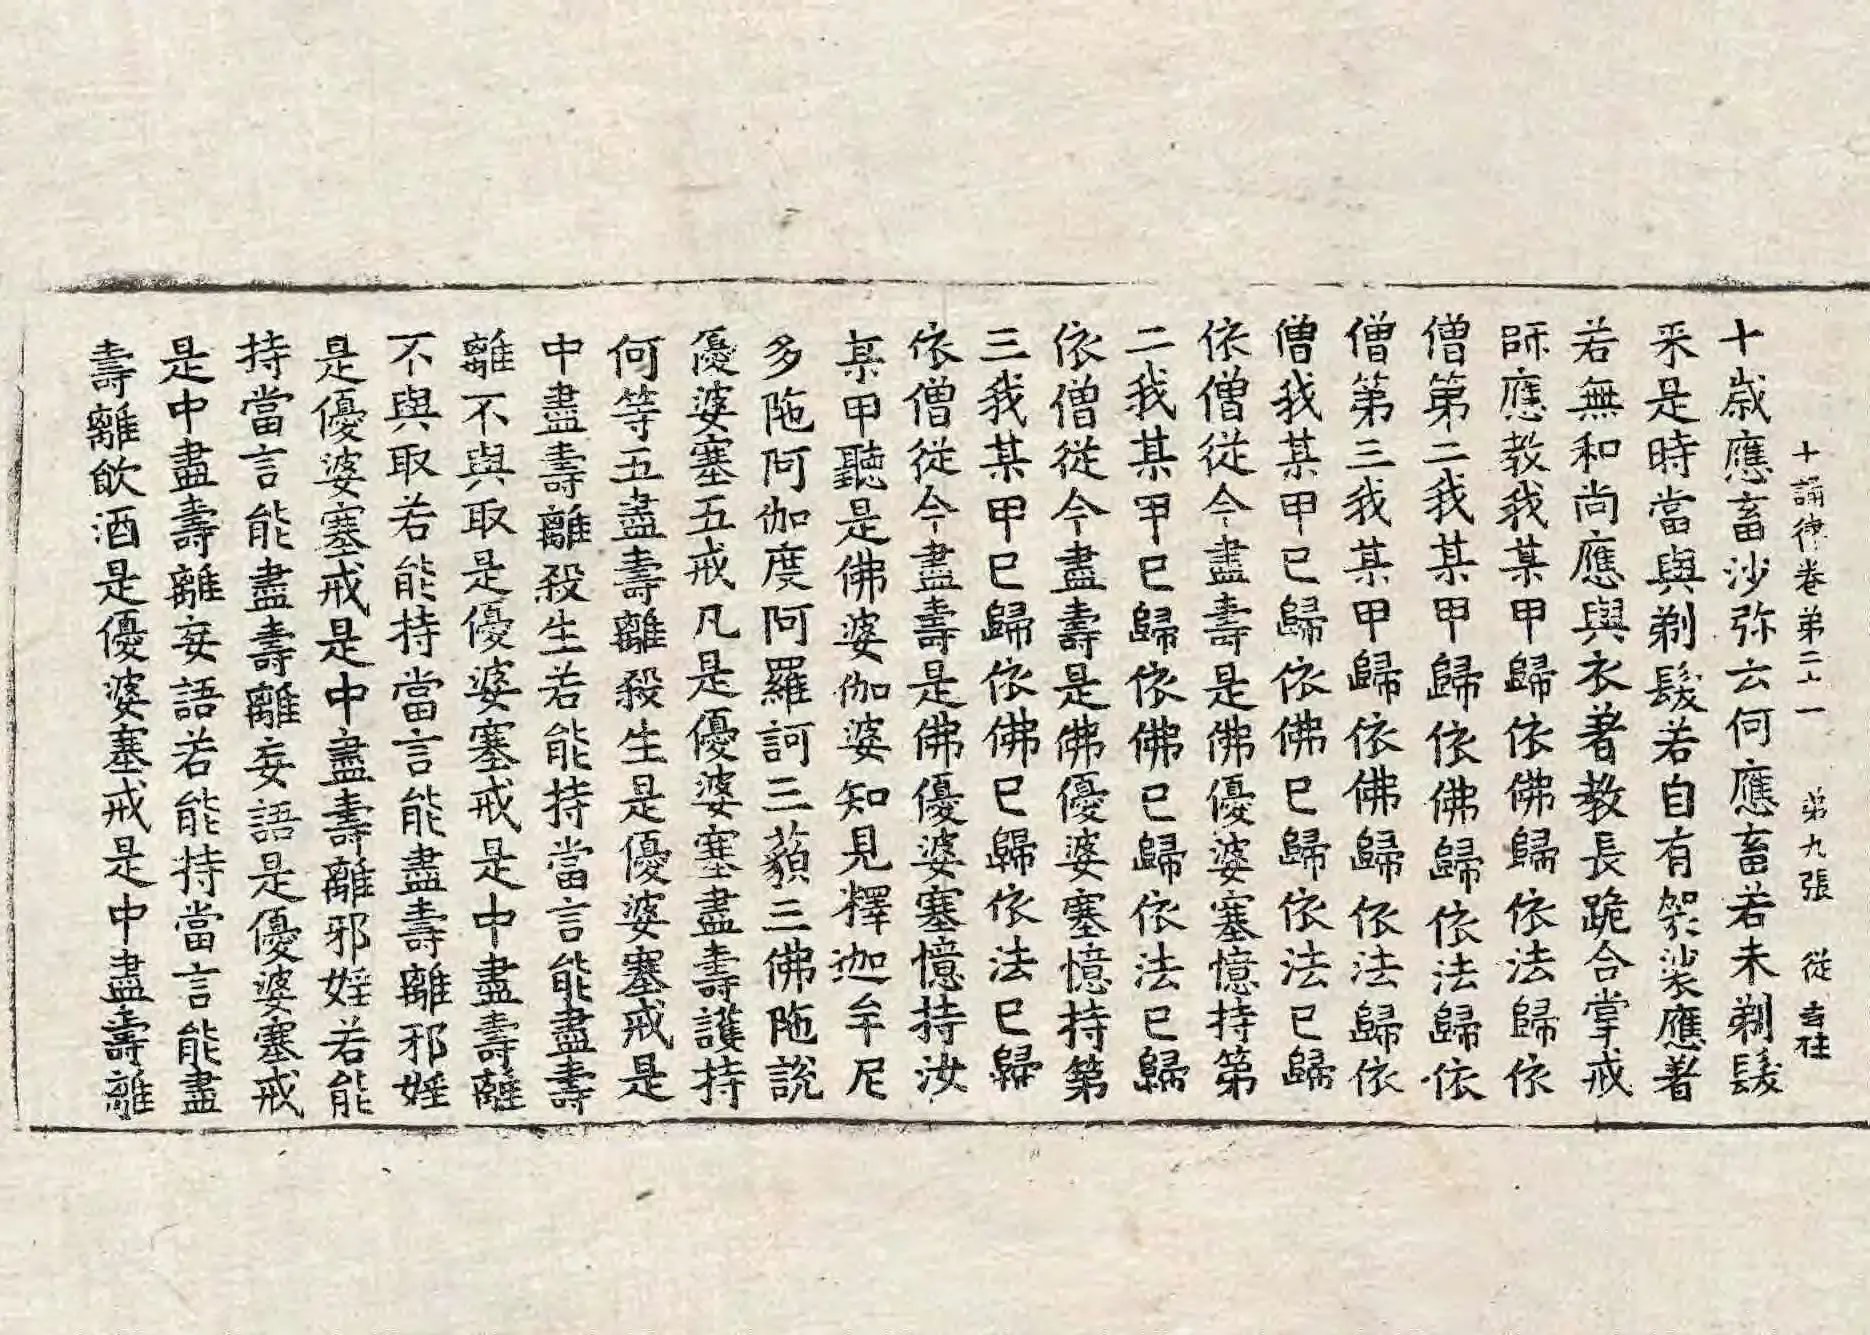 十誦律卷第二十一 第九張 從
十歲應畜沙弥云何應畜若未剃髮
来是時當與剃髮若自有袈裟應著
若無和尚應與衣著教長跪合掌戒
師應教我某甲歸依佛歸依法歸依
僧第二我某甲歸依佛歸依法歸依
僧第三我某甲歸依佛歸依法歸依
僧我某甲已歸依佛已歸依法已歸
依僧從今盡壽是佛優婆塞憶持第
二我某甲已歸依佛已歸依法已歸
依僧從今盡壽是佛優婆塞憶持第
三我某甲已歸依佛已歸依法已歸
依僧從今盡壽是佛優婆塞憶持汝
某甲聽是佛婆伽婆知見釋迦牟尼
多陁阿伽度阿羅訶三藐三佛陁說
優婆塞五戒凡是優婆塞盡壽護持
何等五盡壽離殺生是優婆塞戒是
中盡壽離殺生若能持當言能盡壽
離不與取是優婆塞戒是中盡壽離
不與取若能持當言能盡壽離邪婬
是優婆塞戒是中盡壽離邪婬若能
持當言能盡壽離妄語是優婆塞戒
是中盡壽離妄語若能持當言能盡
壽離飲酒是優婆塞戒是中盡壽離